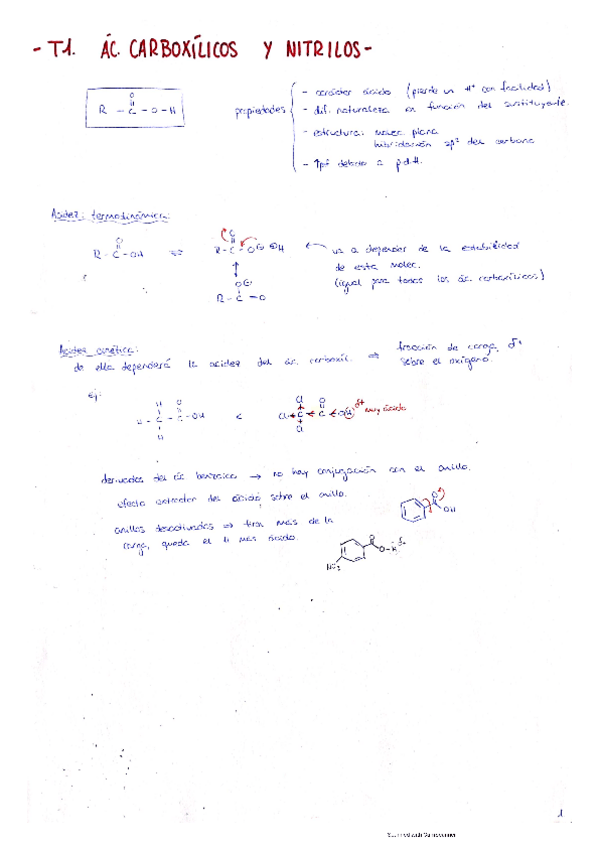 - T1. ÁC. CARBOXÍLICOS Y NITRILOS -
O
R - C - O - H
propiedades
- carácter ácido (pierde un H+ con facilidad)
- dif. naturaleza en función del sustituyente.
- estructura: molec plana
hibridación sp² del carbono
- ↑pf debido a p d H.
Acidez: termodinámica:
O
R - C - OH ⇌ R - C - O⊖ ⊕H
va a depender de la estabilidad
de esta molec.
(igual para todos los ác. carboxílicos)
O⊖
R - C - O
Acidez cinética:
de ella dependerá la acidez del ác. carboxil. ⇒ fracción de carga, δ+
sobre el oxígeno.
ej:
H O
H - C - C - OH
H
<
Cl O
Cl C C OH δ+ muy ácido
Cl
derivados del ác benzoico → no hay conjugación con el anillo.
efecto del ácido sobre el anillo.
O
OH
anillos desactivados ⇒ tiran más de la
carga, queda el H más ácido.
O
O - H δ+
1